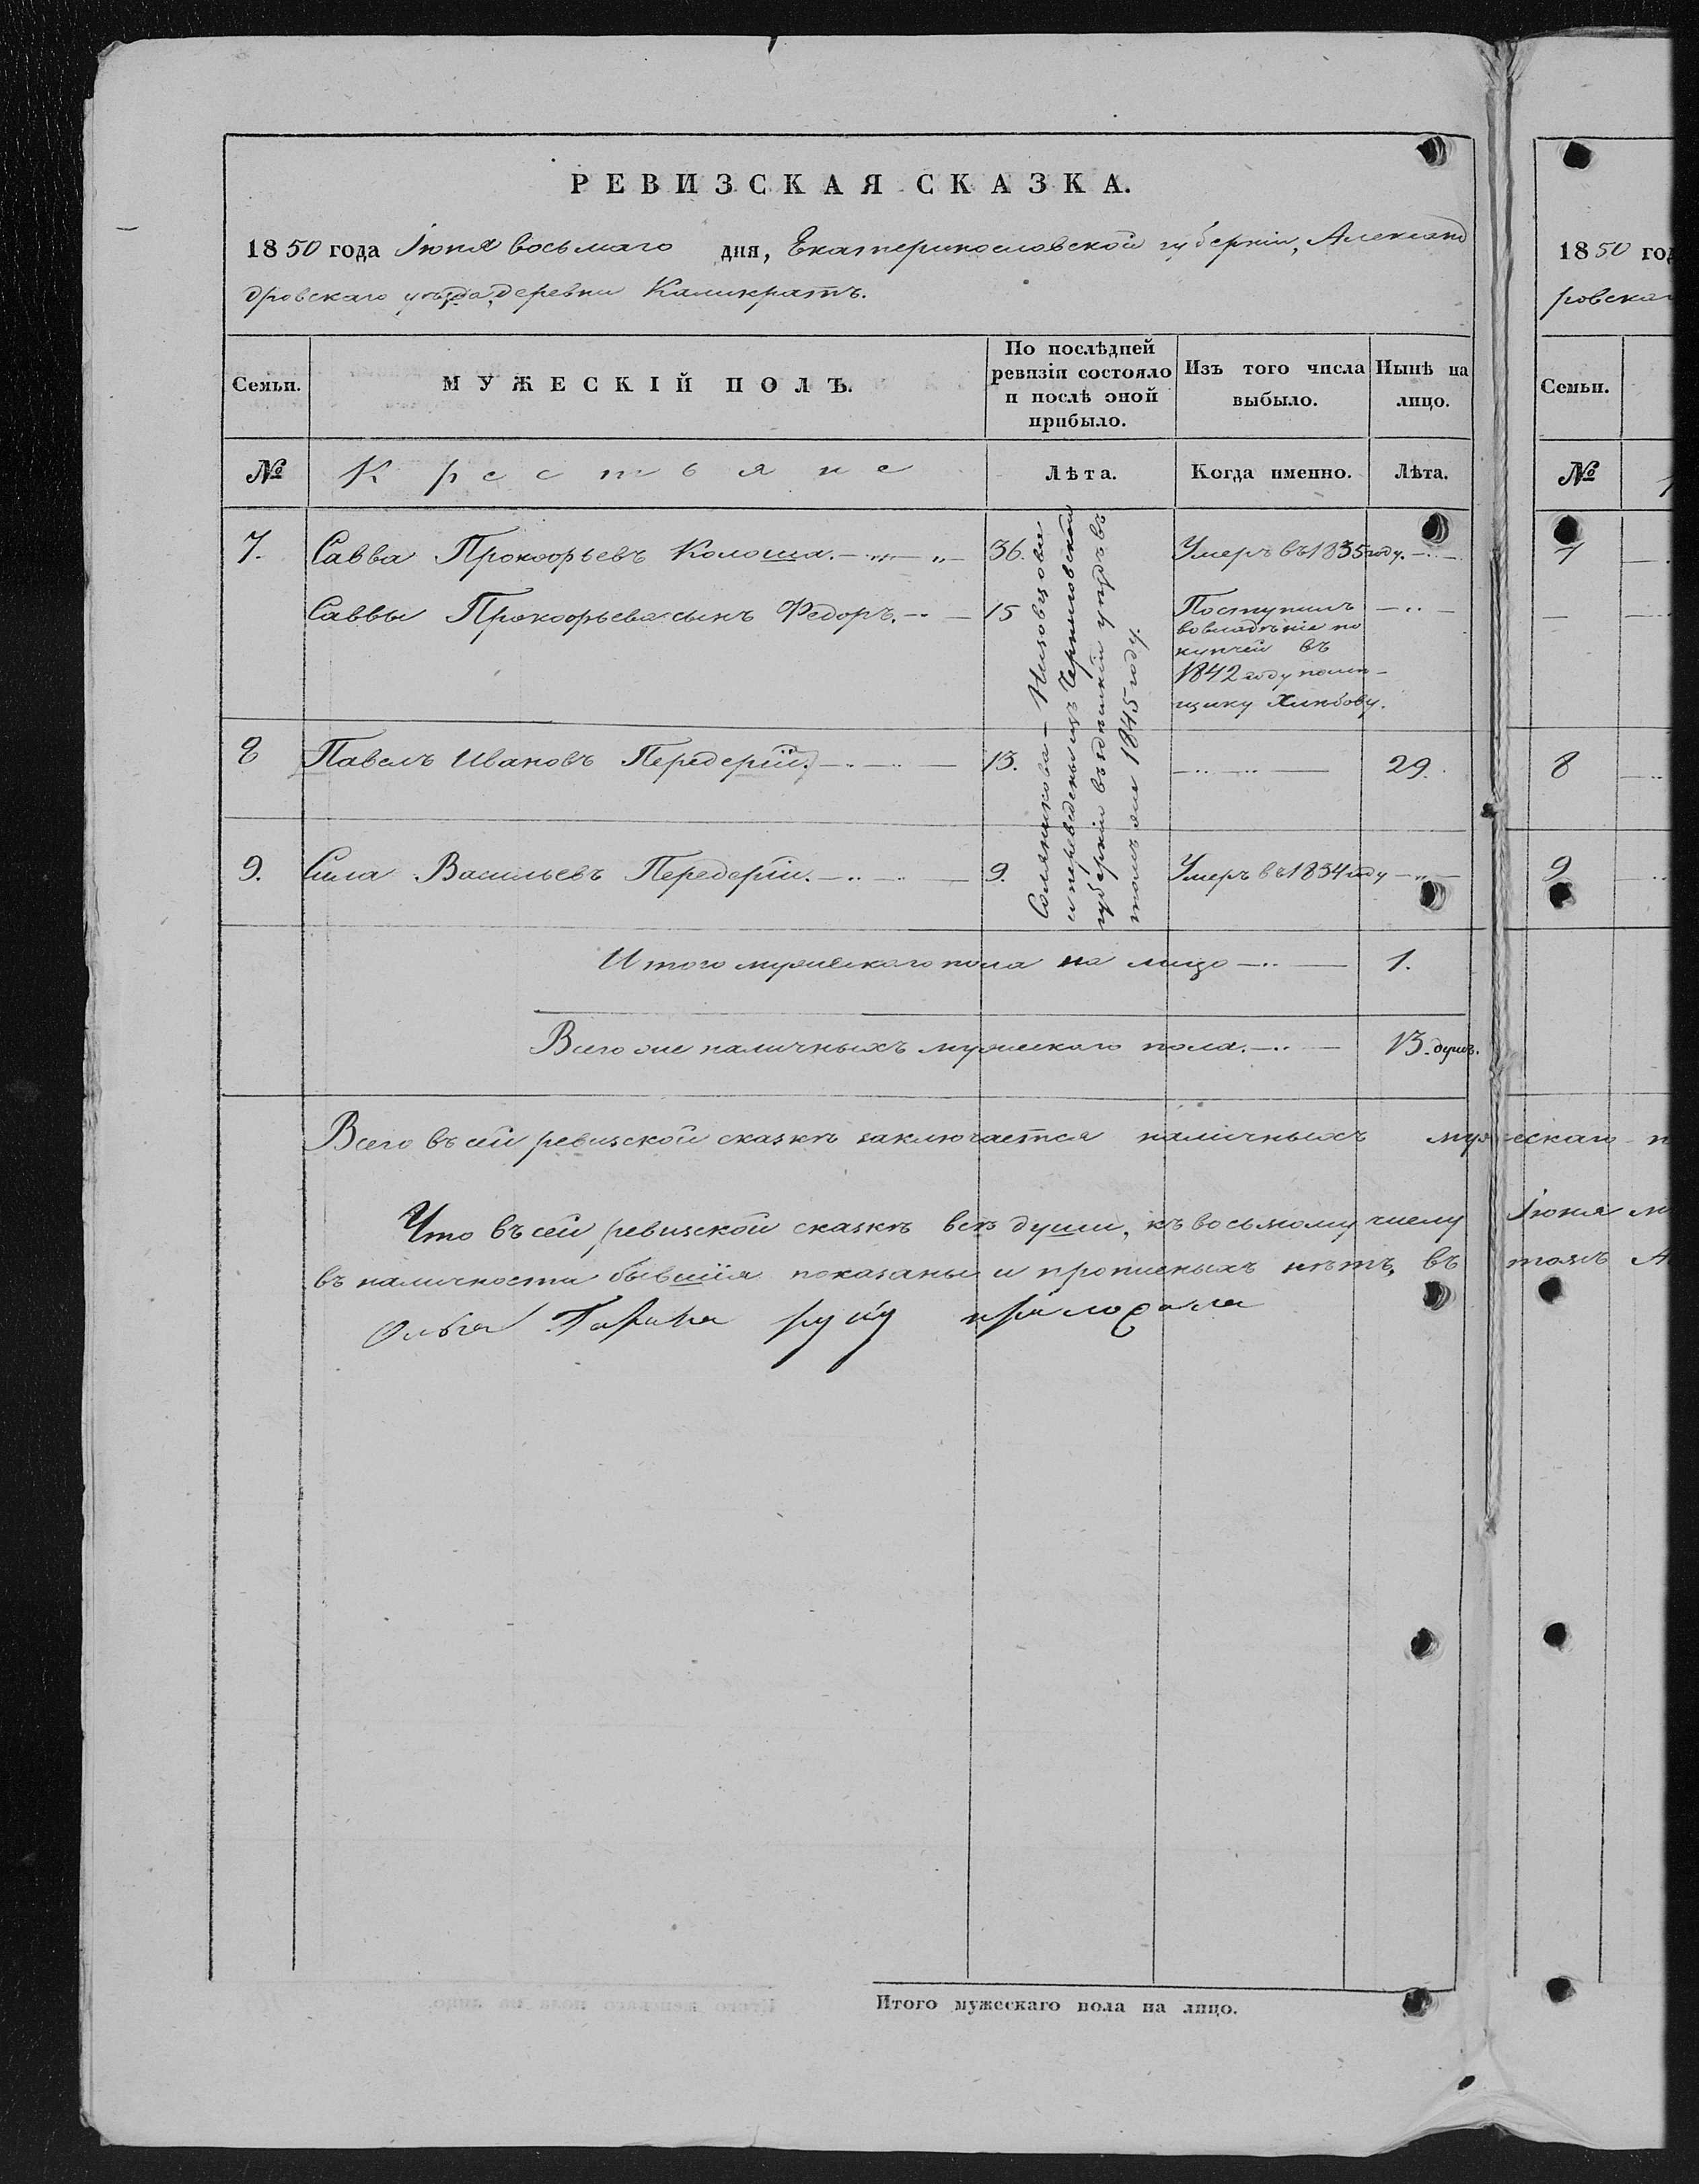 РЕВИЗСКАЯ СКАЗКА.
1850 года Іюня восьмаго дня, Екатеринославской губерніи, Александ
дровскаго уѣзда, деревни Каликратъ.
Семьи.
МУЖЕСКІЙ ПОЛЪ.
По послѣдней
ревизіи состояло
и послѣ оной
прибыло.
Изъ того числа
выбыло.
Нынѣ на
лицо.
№
Крестьяне
Лѣта.
Когда именно.
Лѣта.
7. Савва Прокофьевъ Колоша. 36. Умеръ въ 1835 году.
Саввы Прокофьева сынъ Федоръ. 15 Поступилъ
во владѣніе по
купчей въ
1842 году помѣ-
щику
8 Павелъ Ивановъ Передерій. 13. 29.
9. Сила Васильевъ Передерій. 9. Умеръ въ 1834 году
и переведены изъ Черниговской
губерніи въ здешній уездъ въ
1845 году.
Итого мужескаго пола на лицо 1.
Всего же наличныхъ мужескаго пола. 13. душъ.
Всего въ сей ревизской сказкѣ заключается наличныхъ мужескаго п
Что въ сей ревизской сказкѣ всѣ души, къ восьмому числу Іюня м
въ наличности бывшія показаны и прописныхъ нѣтъ, въ томъ
Ольга руку приложила
Итого мужескаго пола на лицо.
1850 год
ровскаг
Семьи.
№
7
8
9